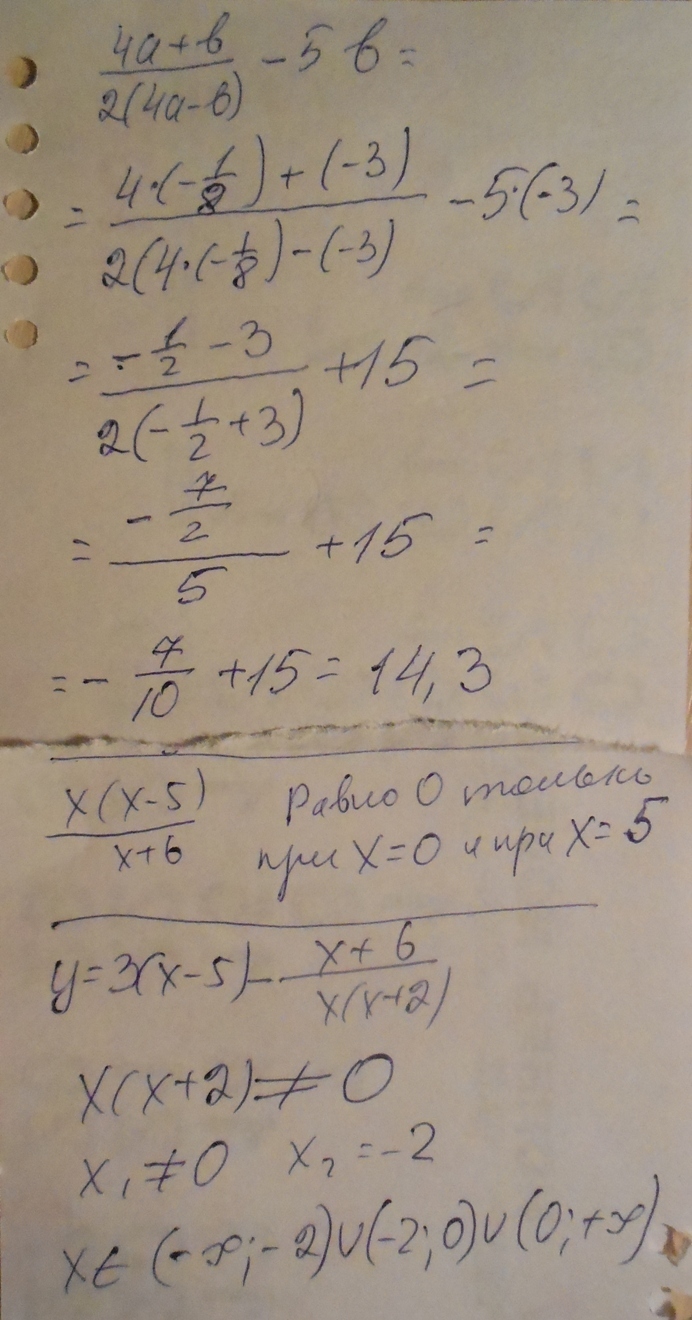 (4а+в)/(2(4а-в)) - 5в =
= (4·(-1/8)+(-3))/(2(4·(-1/8)-(-3))) - 5·(-3) =
= (-1/2 - 3)/(2(-1/2 + 3)) + 15 =
= (-7/2)/5 + 15 =
= - 7/10 + 15 = 14,3
x(x-5)/(x+6) Равно 0 только
при x=0 и при x=5
y=3(x-5) - (x+6)/(x(x+2))
x(x+2)≠0
x₁≠0 x₂=-2
x∈(-∞;-2)∪(-2;0)∪(0;+∞)